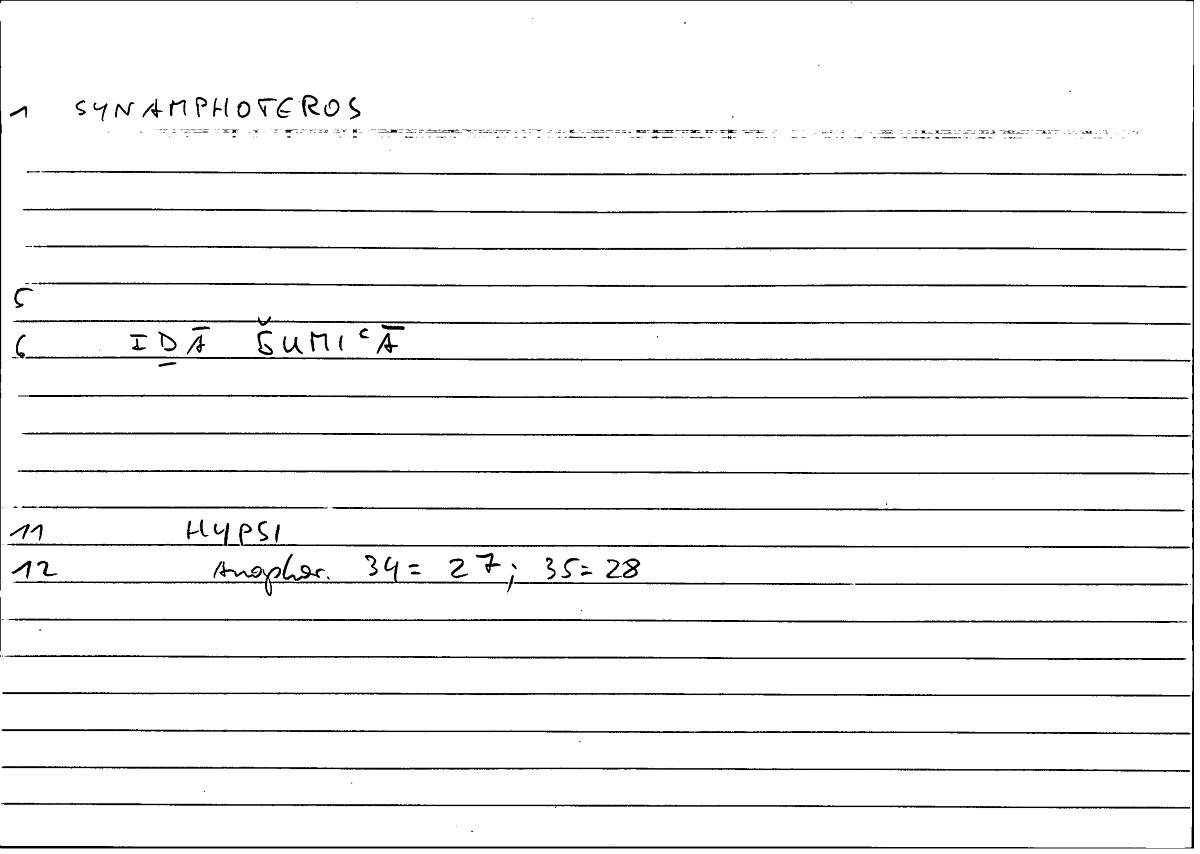 1 SYNAMPHOTEROS
5
6 IḎĀ ŠUMIʿĀ
11 HYPSI
12 Anaphor. 34 = 27; 35 = 28